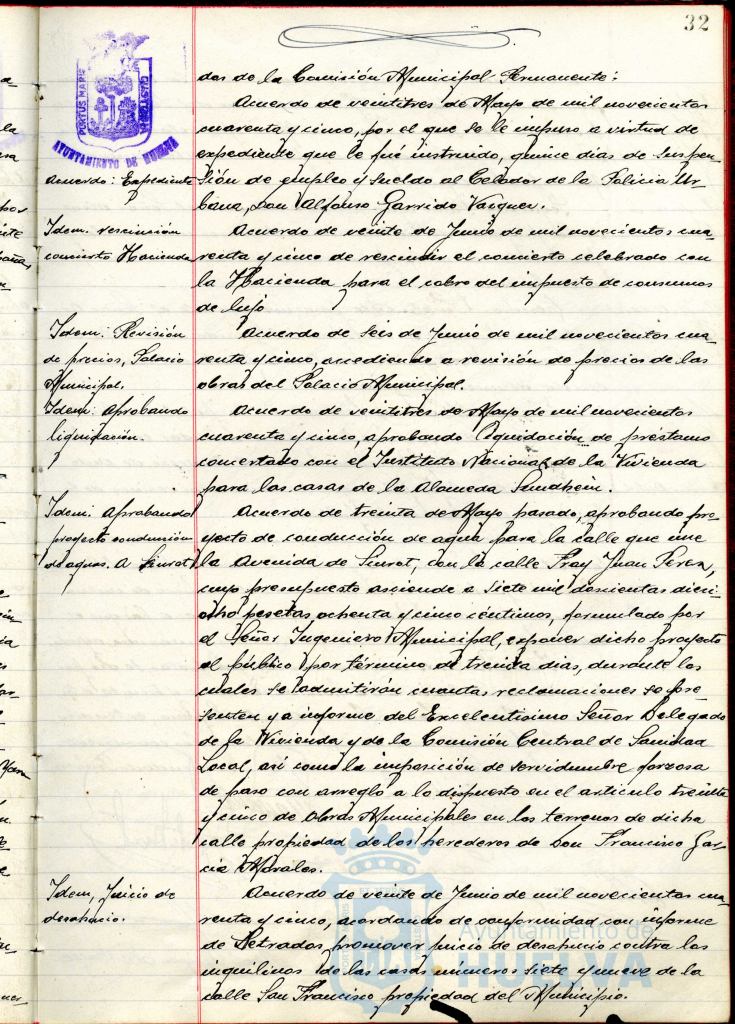 32
PORTUS MARIS
CUSTODIA
AYUNTAMIENTO DE HUELVA
dos de la Comisión Municipal Permanente:
Acuerdo de veintitres de Mayo de mil novecientos
cuarenta y cinco, por el que se le impuso a virtud de
expediente que le fué instruido, quince días de suspen-
Acuerdo: Expediente
sión de empleo y sueldo al Celador de la Policia Ur-
bana, Don Alfonso Garrido Vazquez.
Idem: rescisión
concierto Hacienda
Acuerdo de veinte de Junio de mil novecientos cua-
renta y cinco de rescindir el concierto celebrado con
la Hacienda para el cobro del impuesto de consumos
de lujo
Idem: Revisión
de precios, Palacio
Municipal.
Acuerdo de seis de Junio de mil novecientos cua-
renta y cinco, accediendo a revisión de precios de las
obras del Palacio Municipal.
Idem: Aprobando
liquidación.
Acuerdo de veintitres de Mayo de mil novecientos
cuarenta y cinco, aprobando liquidación de préstamo
concertado con el Instituto Nacional de la Vivienda
para las casas de la Alameda Sundhein.
Idem: Aprobando
proyecto conducción
de aguas. A Siurot
Acuerdo de treinta de Mayo pasado, aprobando pro-
yecto de conducción de agua para la calle que une
la Avenida de Siurot, con la calle Fray Juan Perez,
cuyo presupuesto asciende a siete mil doscientas dieci-
ocho pesetas ochenta y cinco céntimos, formulado por
el Señor Ingeniero Municipal, exponer dicho proyecto
al público por término de treinta dias, durante los
cuales se admitirán cuantas reclamaciones se pre-
senten y a informe del Excelentisimo Señor Delegado
de la Vivienda y de la Comisión Central de Sanidad
Local, así como la imposición de servidumbre forzosa
de paso con arreglo a lo dispuesto en el articulo treinta
y cinco de Obras Municipales en los terrenos de dicha
calle propiedad de los herederos de Don Francisco Gar-
cía Morales.
Idem, Juicio de
desahucio.
Acuerdo de veinte de Junio de mil novecientos cua-
renta y cinco, acordando de conformidad con informe
de Letrados promover juicio de desahucio contra los
inquilinos de las casas números siete y nueve de la
calle San Francisco propiedad del Municipio.
Ayuntamiento de
HUELVA